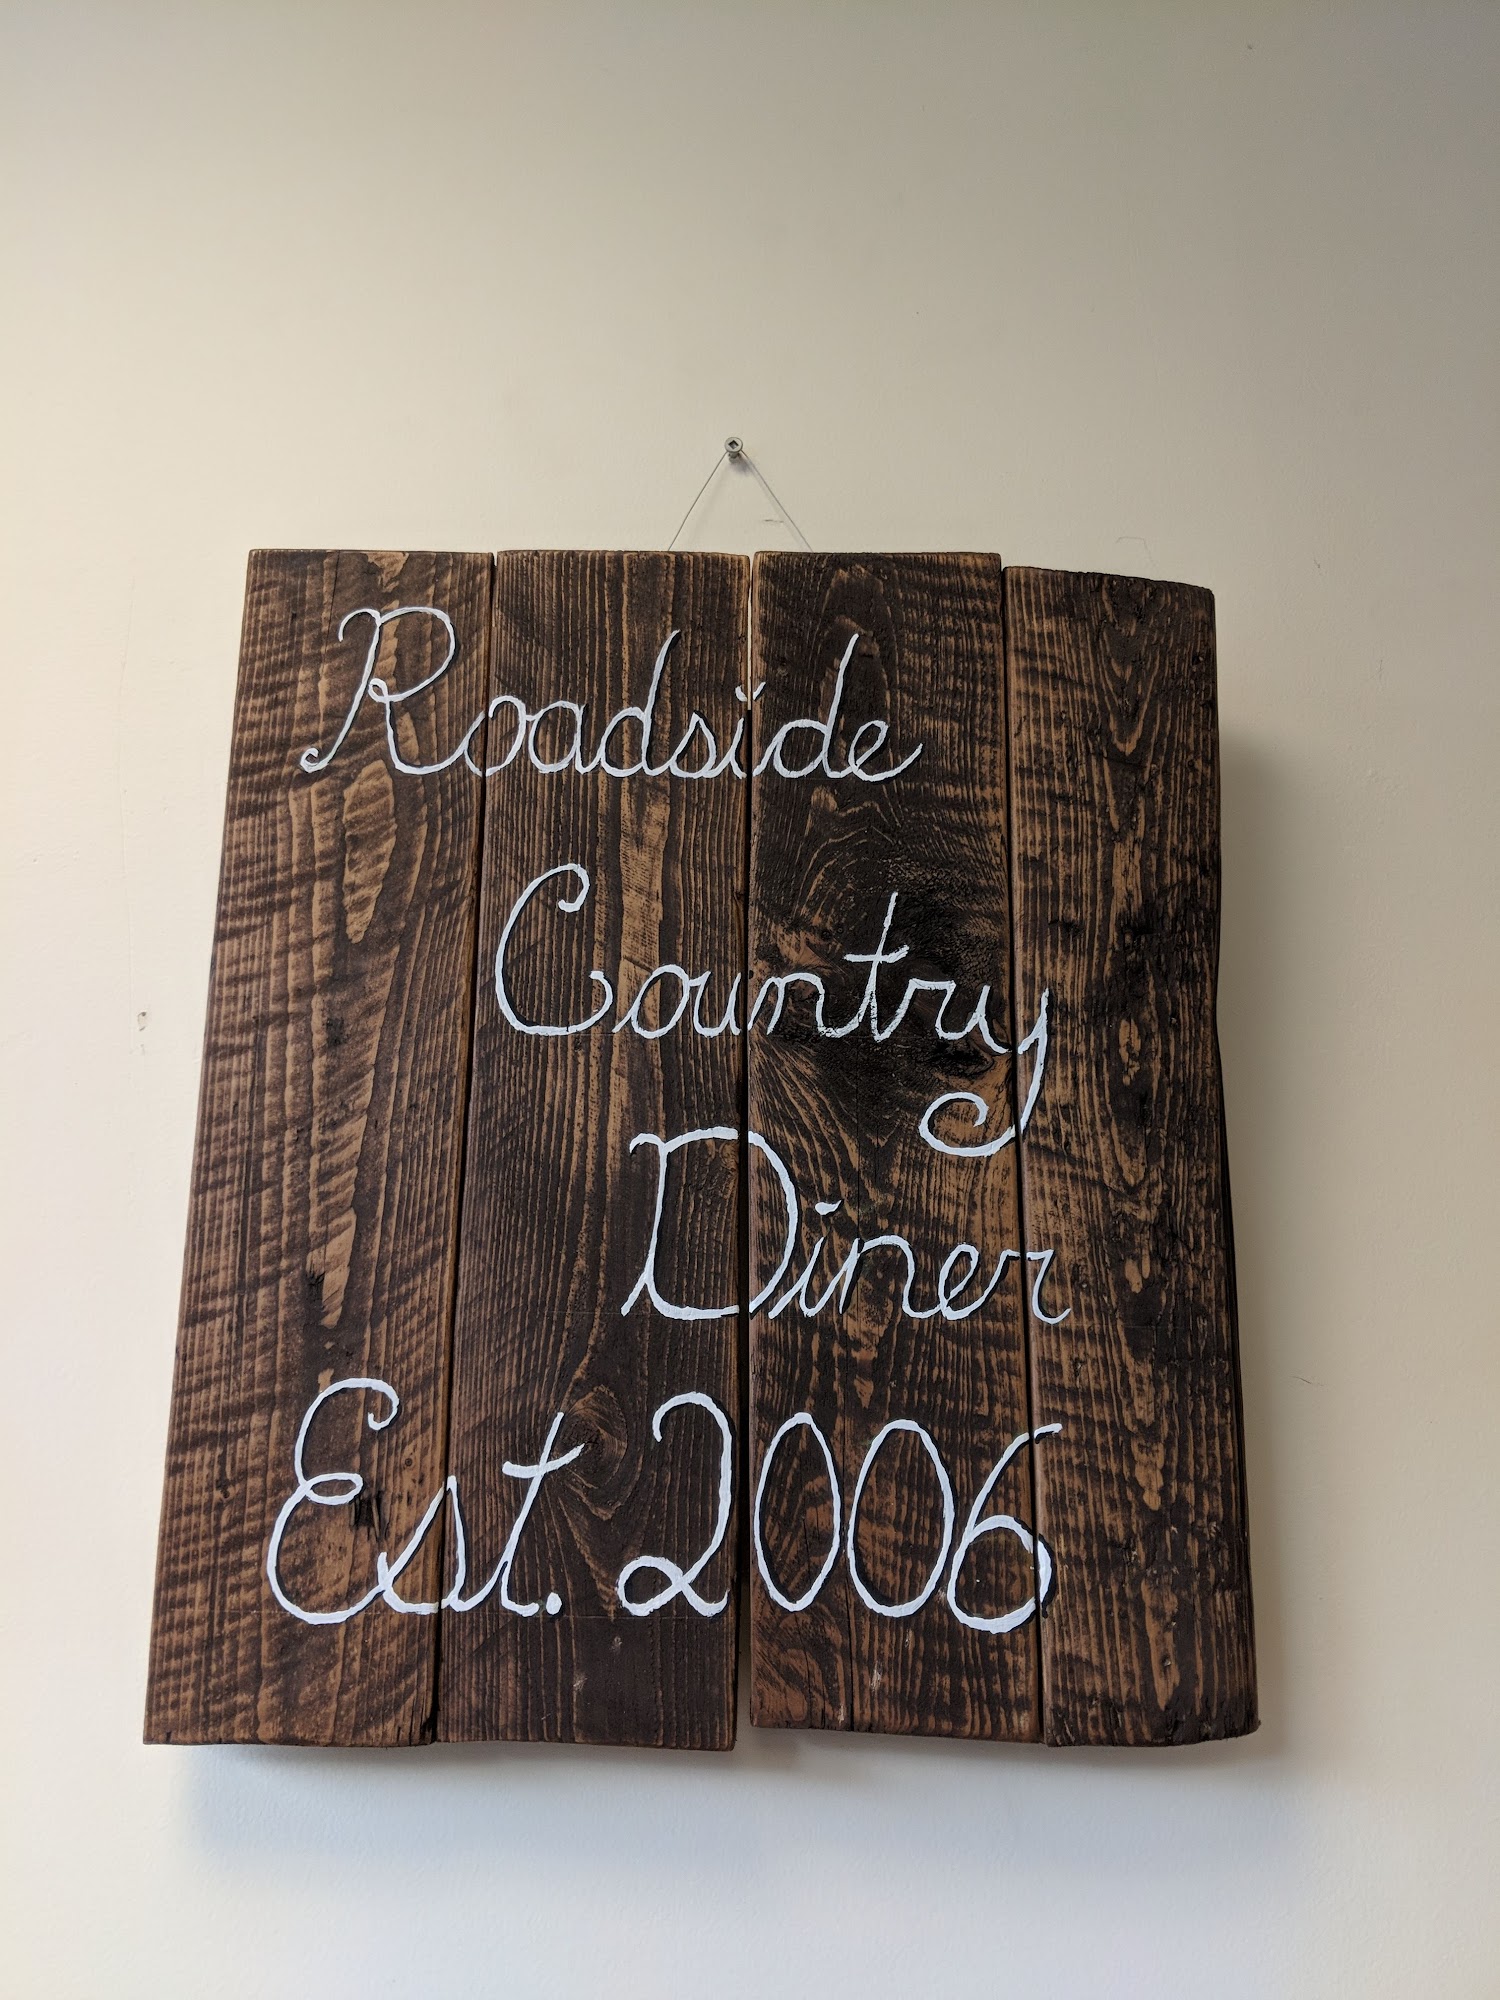 Roadside
Country
Diner
Est. 2006